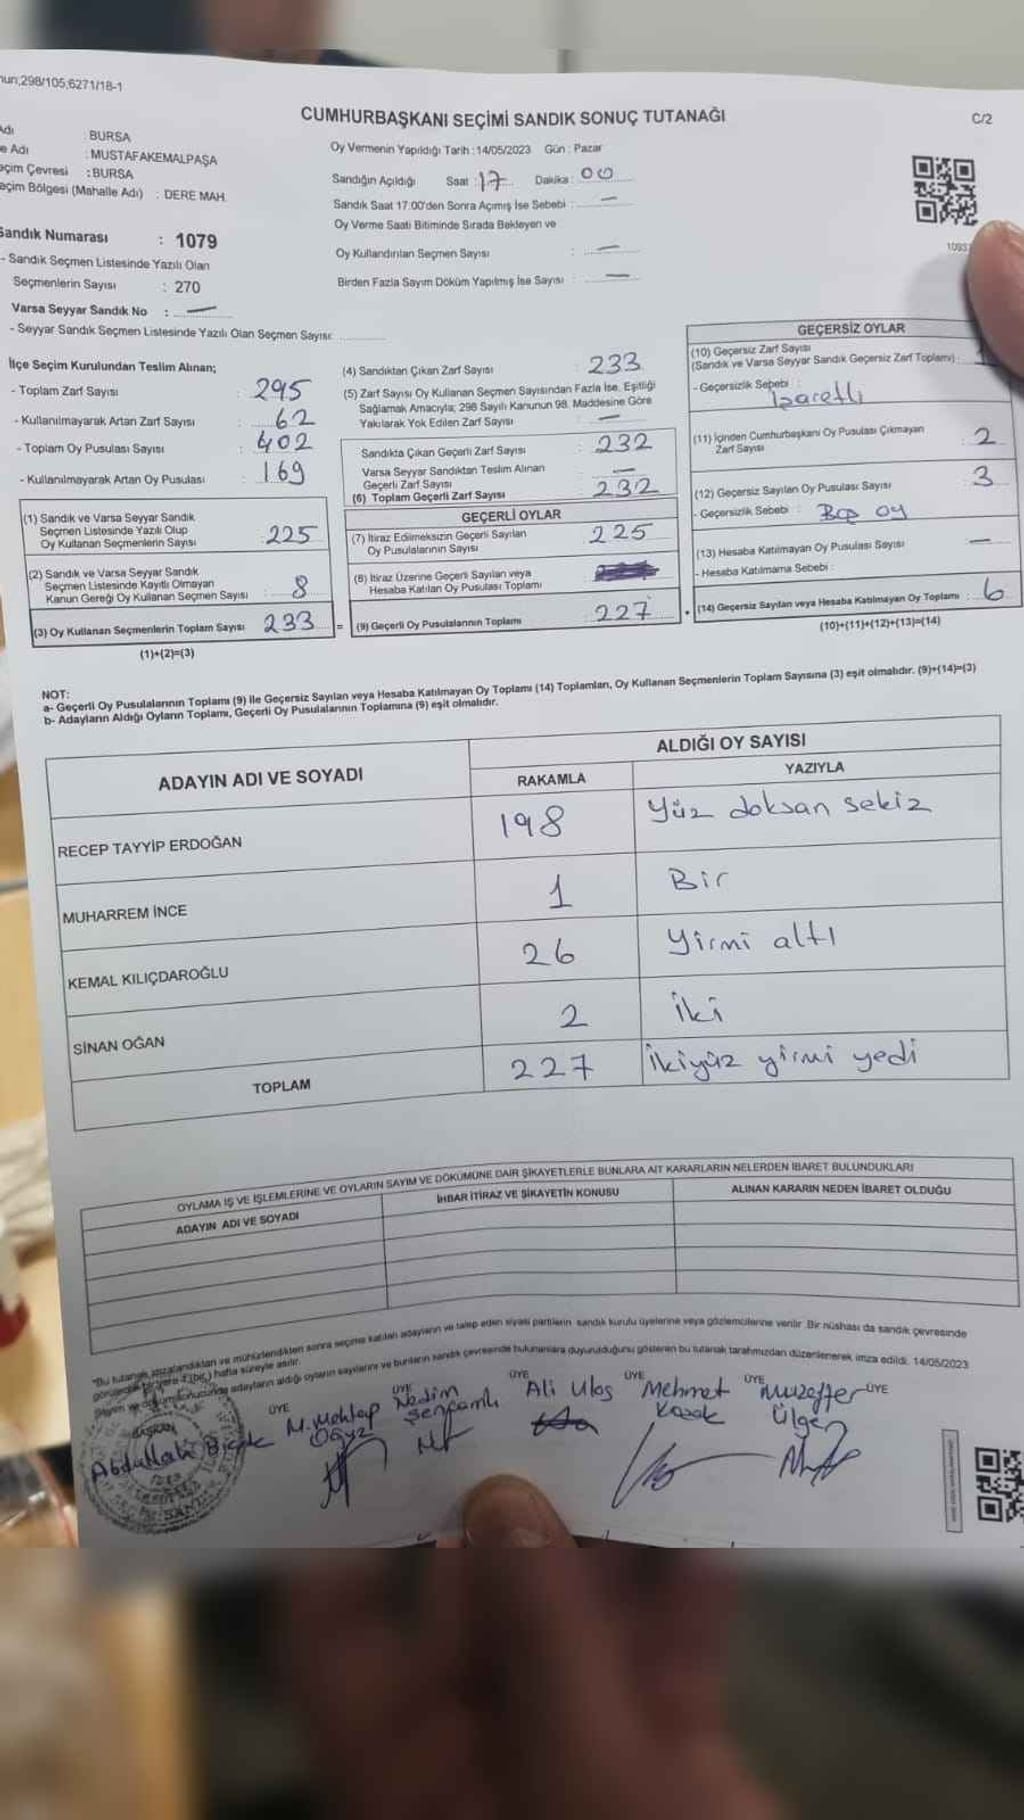 nun;298/105;6271/18-1
CUMHURBAŞKANI SEÇİMİ SANDIK SONUÇ TUTANAĞI
C/2
Adı : BURSA
e Adı : MUSTAFAKEMALPAŞA
eçim Çevresi : BURSA
eçim Bölgesi (Mahalle Adı) : DERE MAH.
Oy Vermenin Yapıldığı Tarih : 14/05/2023 Gün : Pazar
Sandığın Açıldığı Saat : 17 Dakika : 00
Sandık Saat 17:00'den Sonra Açımış İse Sebebi : —
Oy Verme Saati Bitiminde Sırada Bekleyen ve
Oy Kullandırılan Seçmen Sayısı : —
Birden Fazla Sayım Döküm Yapılmış İse Sayısı : —
Sandık Numarası : 1079
- Sandık Seçmen Listesinde Yazılı Olan
Seçmenlerin Sayısı : 270
Varsa Seyyar Sandık No : —
- Seyyar Sandık Seçmen Listesinde Yazılı Olan Seçmen Sayısı:
İlçe Seçim Kurulundan Teslim Alınan;
- Toplam Zarf Sayısı : 295
- Kullanılmayarak Artan Zarf Sayısı : 62
- Toplam Oy Pusulası Sayısı : 402
- Kullanılmayarak Artan Oy Pusulası : 169
(1) Sandık ve Varsa Seyyar Sandık
Seçmen Listesinde Yazılı Olup
Oy Kullanan Seçmenlerin Sayısı : 225
(2) Sandık ve Varsa Seyyar Sandık
Seçmen Listesinde Kayıtlı Olmayan
Kanun Gereği Oy Kullanan Seçmen Sayısı : 8
(3) Oy Kullanan Seçmenlerin Toplam Sayısı 233
(1)+(2)=(3)
(4) Sandıktan Çıkan Zarf Sayısı : 233
(5) Zarf Sayısı Oy Kullanan Seçmen Sayısından Fazla İse, Eşitliği
Sağlamak Amacıyla; 298 Sayılı Kanunun 98. Maddesine Göre
Yakılarak Yok Edilen Zarf Sayısı : —
Sandıkta Çıkan Geçerli Zarf Sayısı : 232
Varsa Seyyar Sandıktan Teslim Alınan
Geçerli Zarf Sayısı : —
(6) Toplam Geçerli Zarf Sayısı : 232
GEÇERLİ OYLAR
(7) İtiraz Edilmeksizin Geçerli Sayılan
Oy Pusulalarının Sayısı : 225
(8) İtiraz Üzerine Geçerli Sayılan veya
Hesaba Katılan Oy Pusulası Toplamı :
= (9) Geçerli Oy Pusulalarının Toplamı : 227
GEÇERSİZ OYLAR
(10) Geçersiz Zarf Sayısı
(Sandık ve Varsa Seyyar Sandık Geçersiz Zarf Toplamı) : 1
- Geçersizlik Sebebi : İşaretli
(11) İçinden Cumhurbaşkanı Oy Pusulası Çıkmayan
Zarf Sayısı : 2
(12) Geçersiz Sayılan Oy Pusulası Sayısı : 3
- Geçersizlik Sebebi : Boş oy
(13) Hesaba Katılmayan Oy Pusulası Sayısı : —
- Hesaba Katılmama Sebebi :
+ (14) Geçersiz Sayılan veya Hesaba Katılmayan Oy Toplamı : 6
(10)+(11)+(12)+(13)=(14)
NOT:
a- Geçerli Oy Pusulalarının Toplamı (9) ile Geçersiz Sayılan veya Hesaba Katılmayan Oy Toplamı (14) Toplamları, Oy Kullanan Seçmenlerin Toplam Sayısına (3) eşit olmalıdır. (9)+(14)=(3)
b- Adayların Aldığı Oyların Toplamı, Geçerli Oy Pusulalarının Toplamına (9) eşit olmalıdır.
ADAYIN ADI VE SOYADI
ALDIĞI OY SAYISI
RAKAMLA YAZIYLA
RECEP TAYYİP ERDOĞAN 198 Yüz doksan sekiz
MUHARREM İNCE 1 Bir
KEMAL KILIÇDAROĞLU 26 Yirmi altı
SİNAN OĞAN 2 İki
TOPLAM 227 İkiyüz yirmi yedi
OYLAMA İŞ VE İŞLEMLERİNE VE OYLARIN SAYIM VE DÖKÜMÜNE DAİR ŞİKAYETLERLE BUNLARA AİT KARARLARIN NELERDEN İBARET BULUNDUKLARI
ADAYIN ADI VE SOYADI İHBAR İTİRAZ VE ŞİKAYETİN KONUSU ALINAN KARARIN NEDEN İBARET OLDUĞU
"Bu tutanak imzalandıktan ve mühürlendikten sonra seçime katılan adayların ve talep eden siyasi partilerin sandık kurulu üyelerine veya gözlemcilerine verilir. Bir nüshası da sandık çevresinde
görülecek bir yere 1 (bir) hafta süreyle asılır.
adayların aldığı oyların sayılarını ve bunların sandık çevresinde bulunanlara duyurulduğunu gösteren bu tutanak tarafımızdan düzenlenerek imza edildi. 14/05/2023
BAŞKAN ÜYE ÜYE ÜYE ÜYE ÜYE ÜYE
Abdullah M. Mehtap Oğuz Nedim Şençamlı Ali Ulaş Mehmet Kozak Muzaffer Ülgen